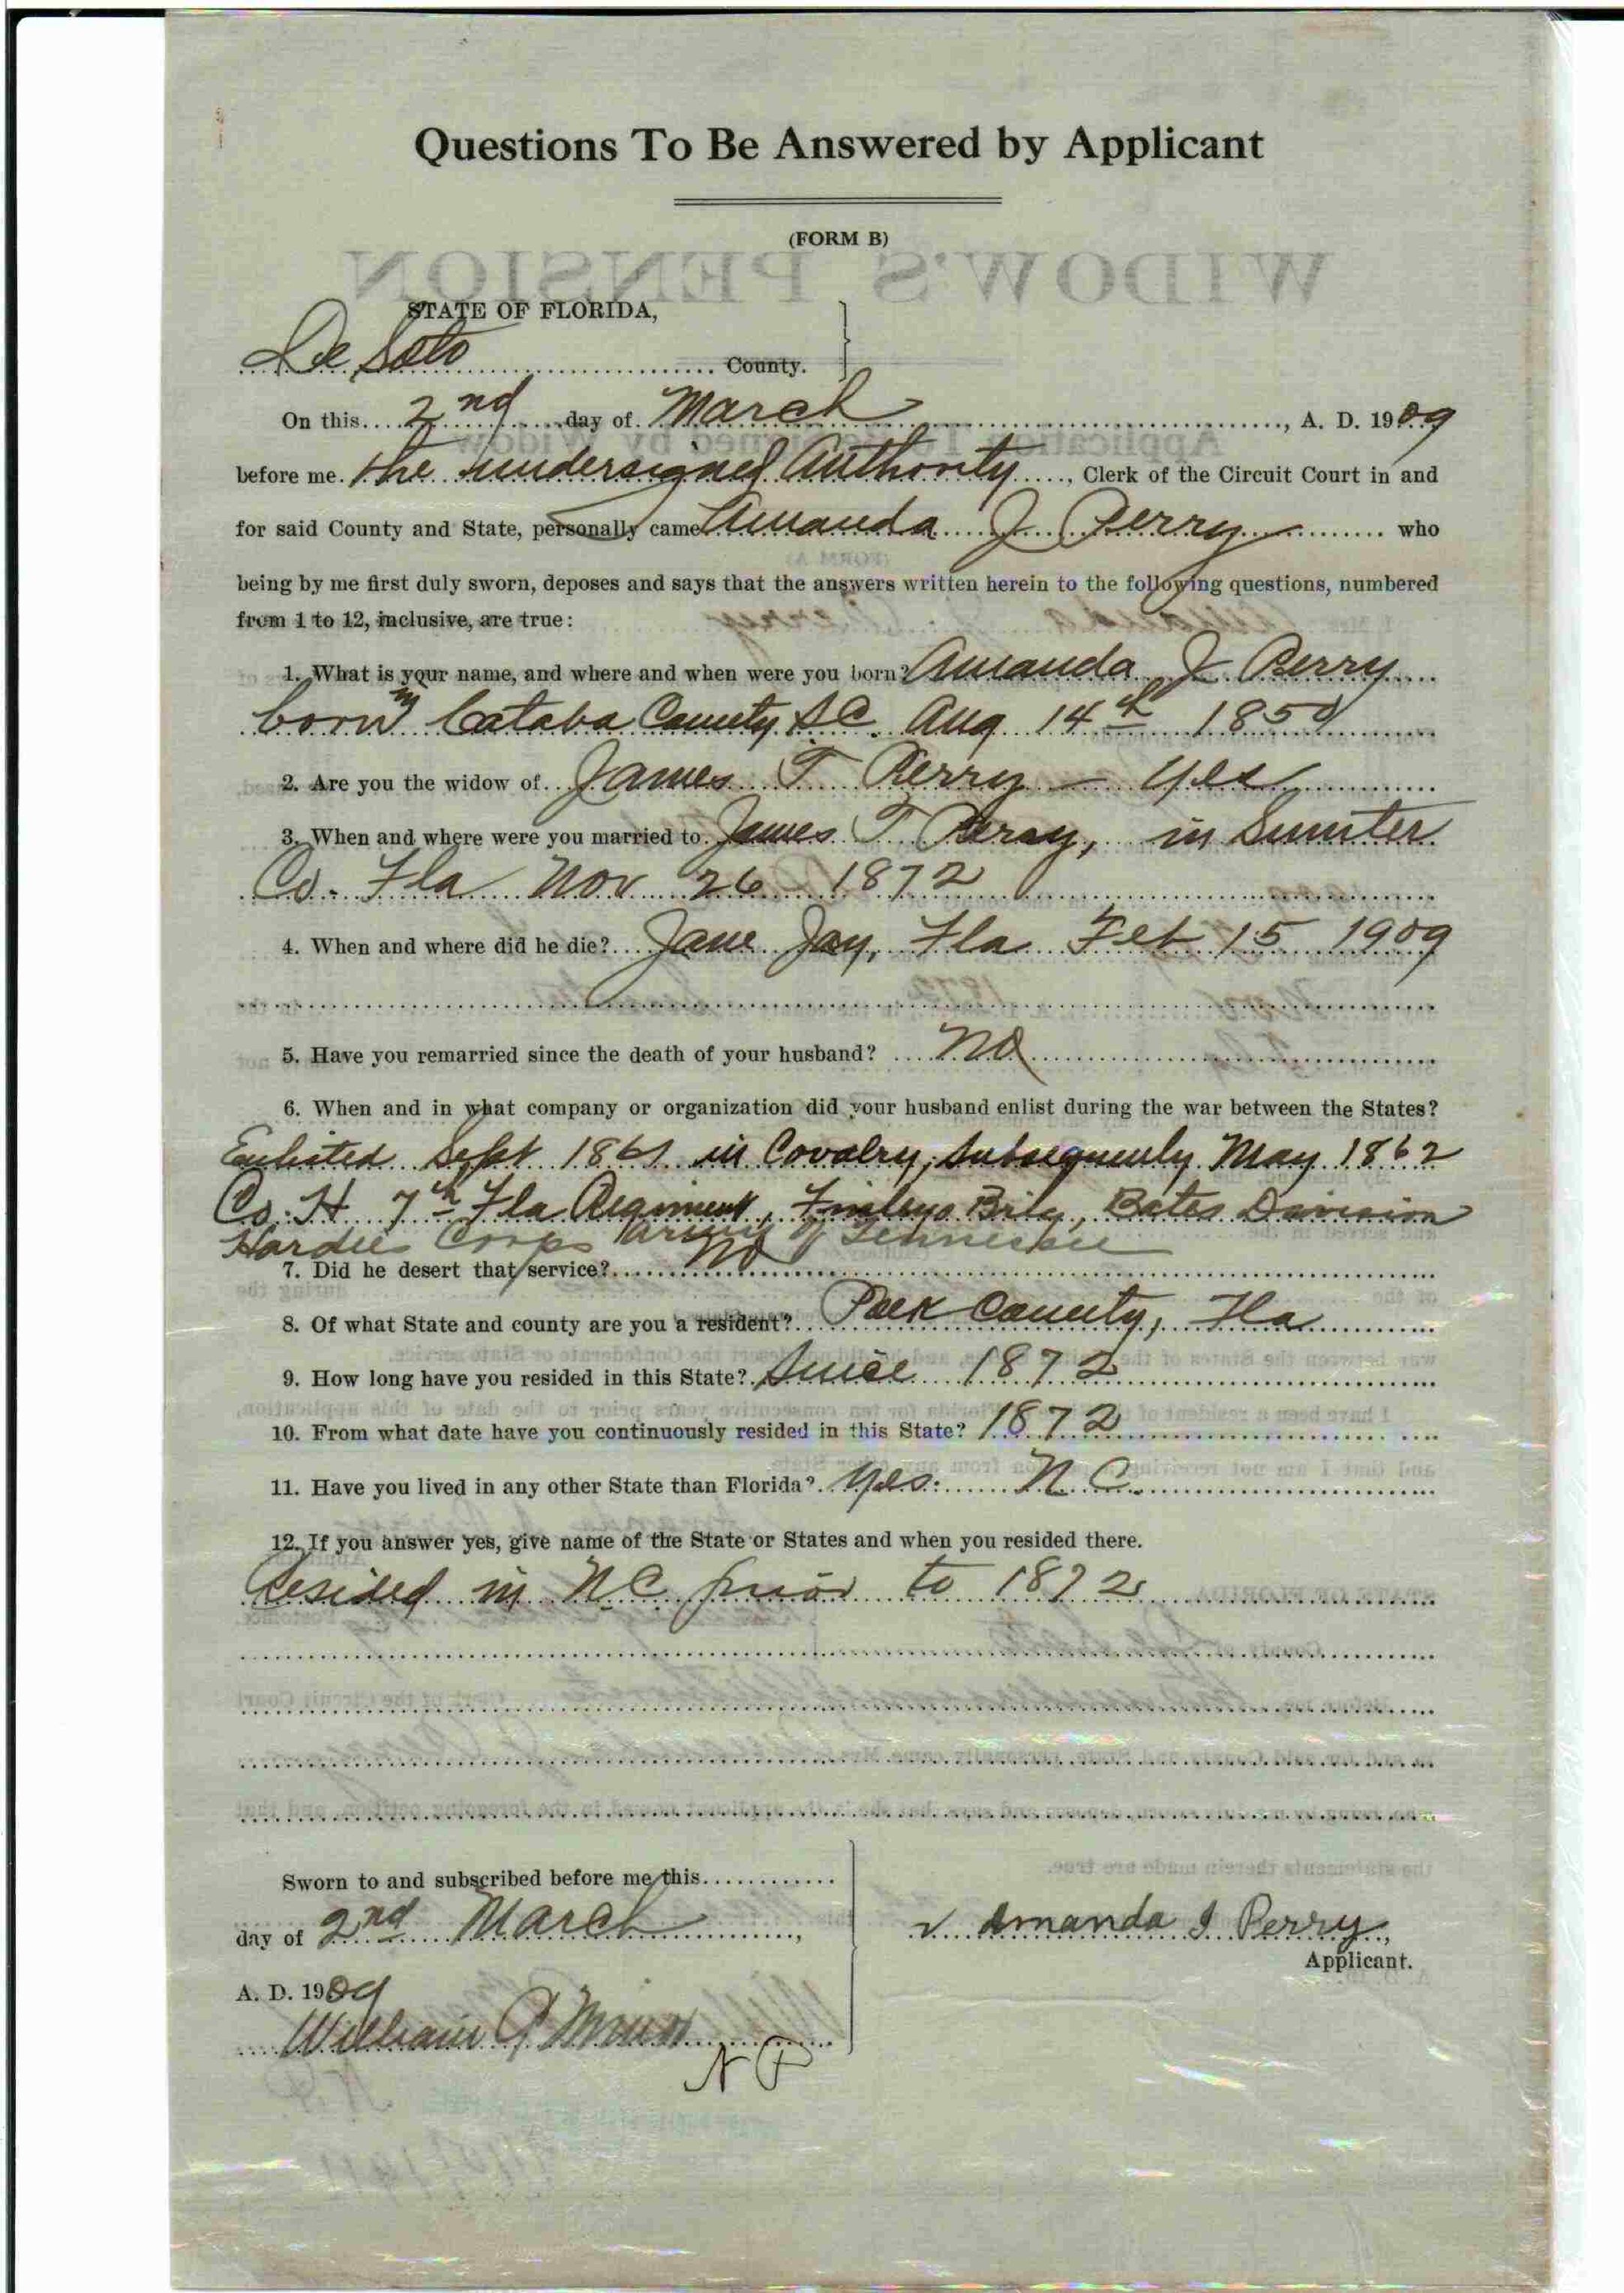 Questions To Be Answered by Applicant
(FORM B)
STATE OF FLORIDA,
De Soto County.
On this 2nd day of March, A. D. 1909
before me the undersigned Authority, Clerk of the Circuit Court in and
for said County and State, personally came Amanda J Perry who
being by me first duly sworn, deposes and says that the answers written herein to the following questions, numbered
from 1 to 12, inclusive, are true:
1. What is your name, and where and when were you born? Amanda J Perry
born in Cataba County Aug 14th 1850
2. Are you the widow of James T Perry - Yes
3. When and where were you married to James T Perry, in Sumter
Co. Fla Nov 26 1872
4. When and where did he die? Jane Jay, Fla Feb 15 1909
5. Have you remarried since the death of your husband? No
6. When and in what company or organization did your husband enlist during the war between the States?
Enlisted Sept 1861 in Covalry, Subsequently May 1862
Co. H 7th Fla Regiment, Finleys Brig, Bates Division
Hardies Corps Army of Tennessee
7. Did he desert that service? No
8. Of what State and county are you a resident? Polk County, Fla
9. How long have you resided in this State? Since 1872
10. From what date have you continuously resided in this State? 1872
11. Have you lived in any other State than Florida? Yes. N.C.
12. If you answer yes, give name of the State or States and when you resided there.
Resided in N.C. prior to 1872
Sworn to and subscribed before me this
day of 2nd March,
A. D. 1909
William
N P
Amanda J Perry,
Applicant.